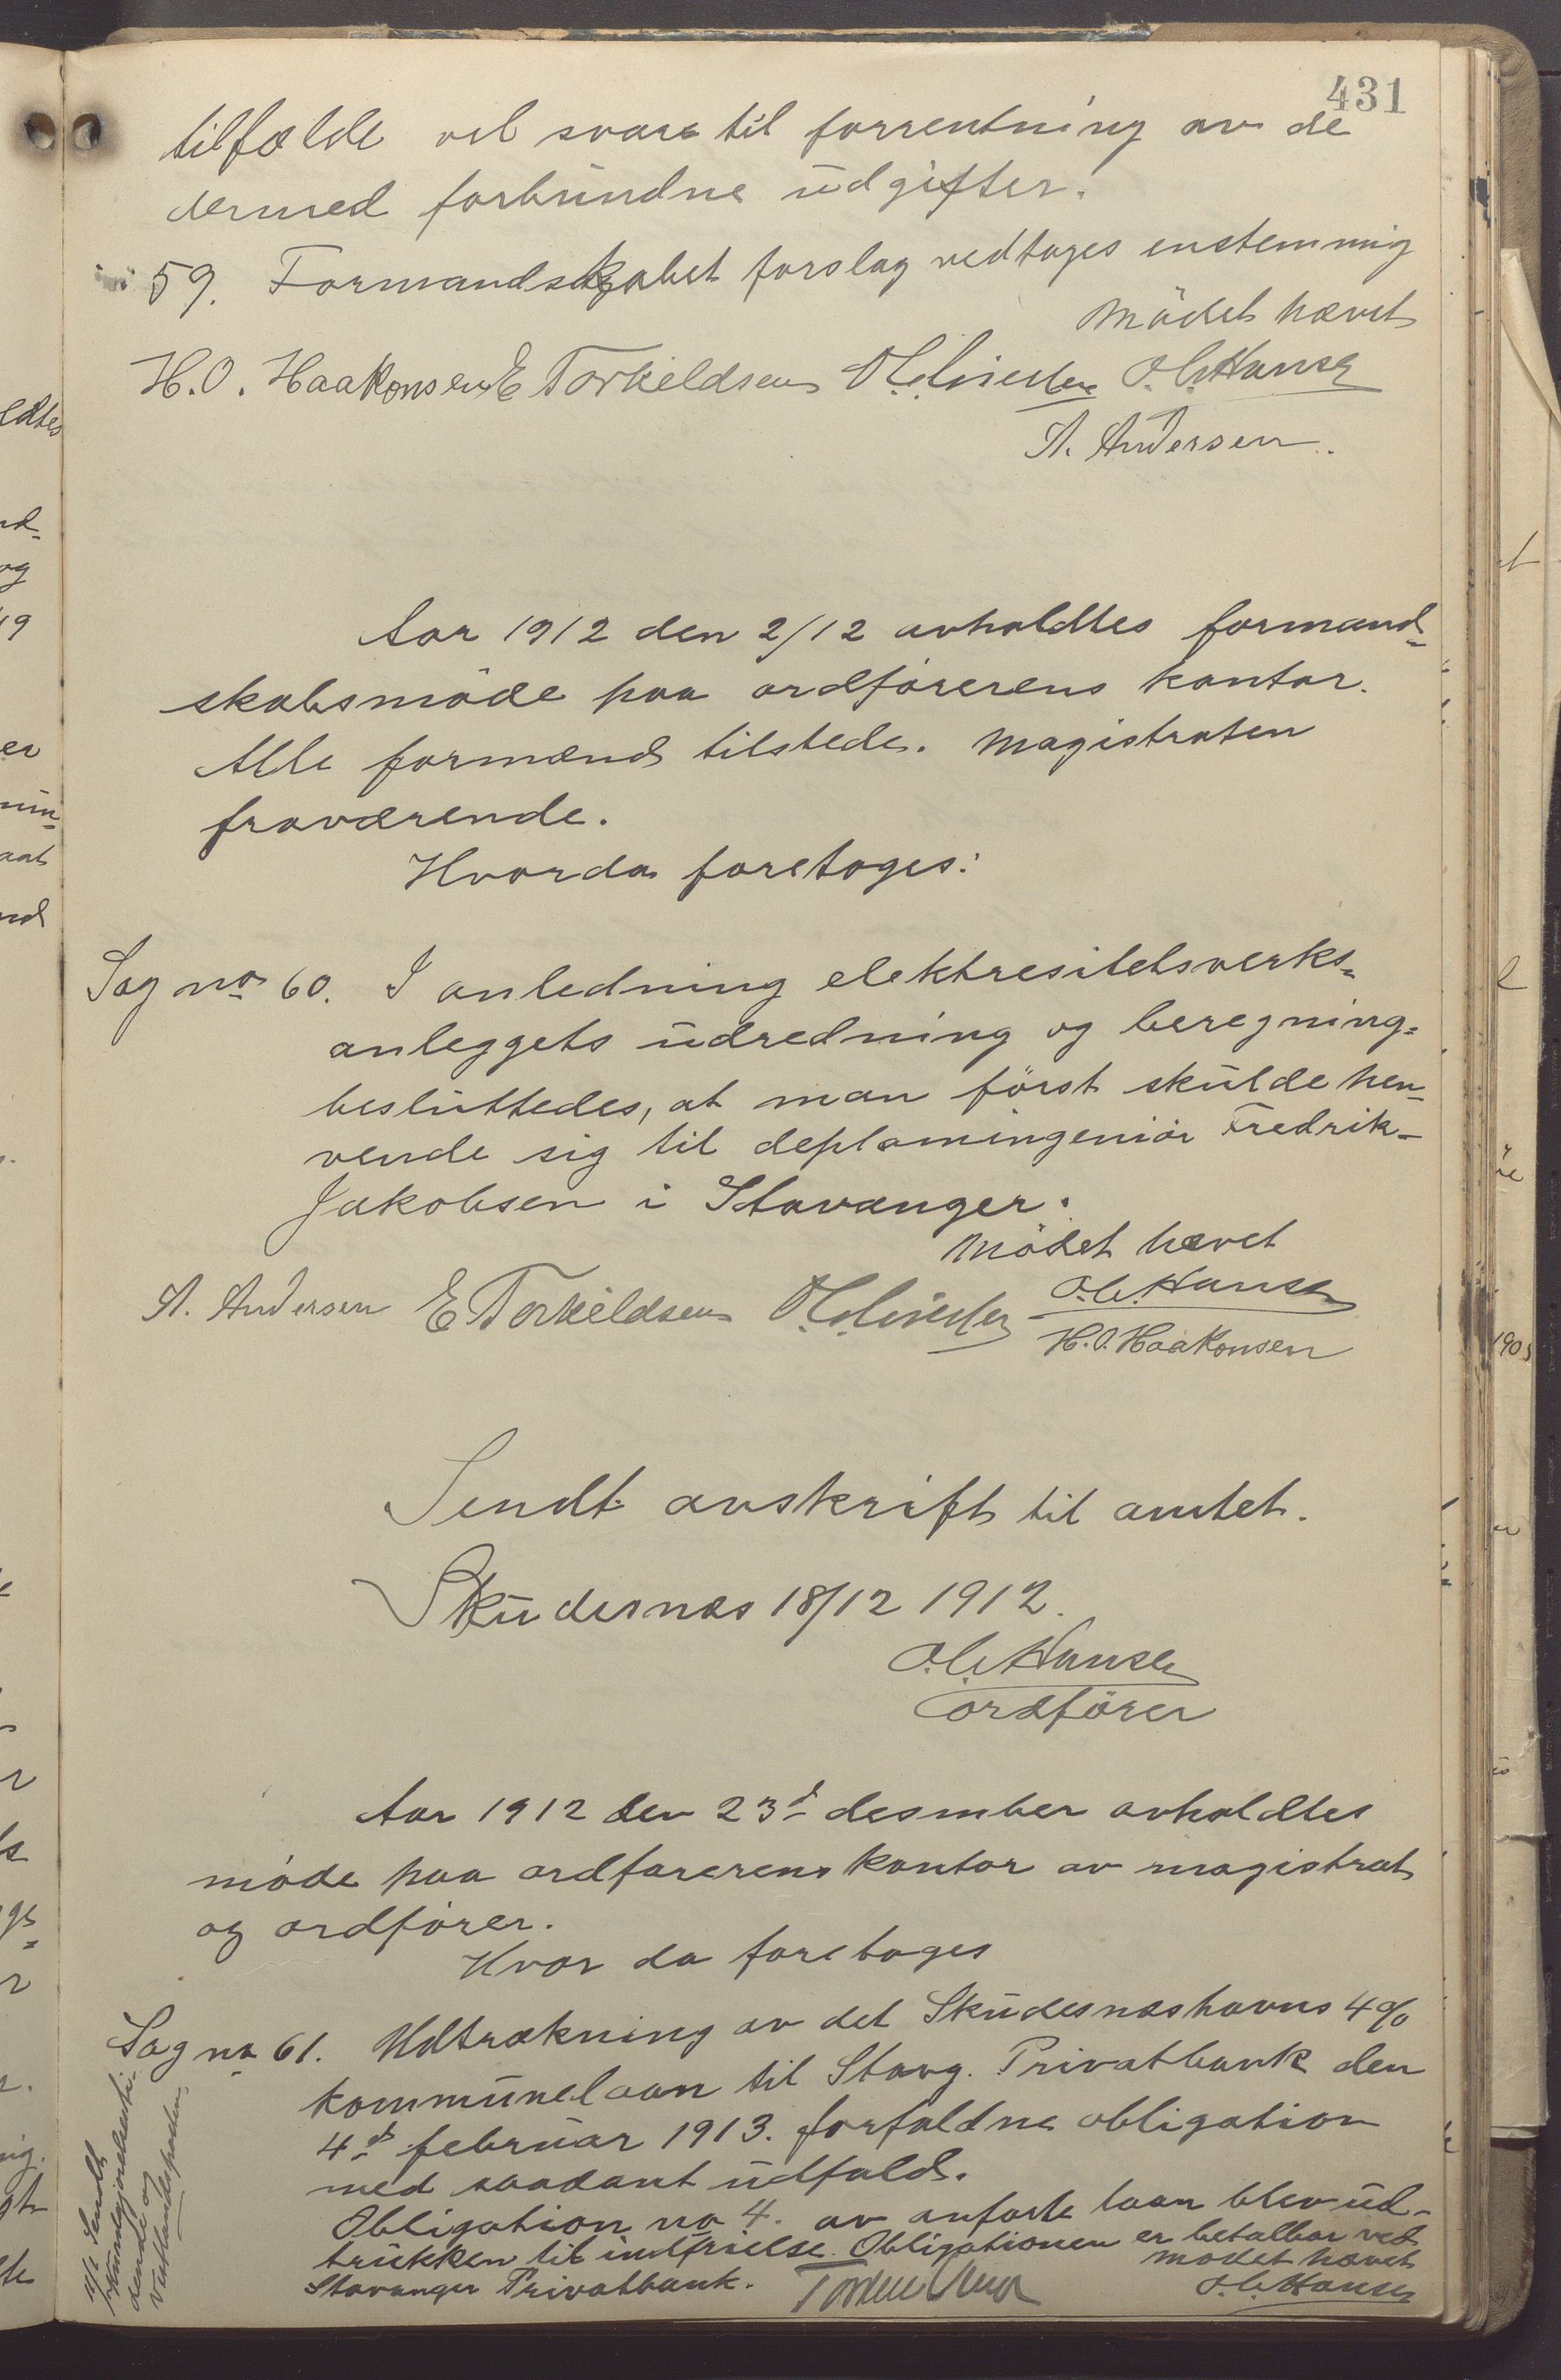 431
tilfælde vel svare til forrentning av de
dermed forbundne udgifter.
59. Formandskabet forslag vedtages enstemmig
Mödet hævet
H.O. Haakonsen E Torkildsen O. C. Hansen
A. Andersen.
Aar 1912 den 2/12 avholdtes formand=
skabsmöde paa ordförerens kontor.
Alle formænd tilstede. Magistraten
fraværende.
Hvorda foretoges:
Sag no 60. I anledning elektresitetsverks=
anleggets udredning og beregning=
besluttedes, at man först skulde hen=
vende sig til deplomingeniör Fredrik-
Jakobsen i Stavanger.
Mödet hævet
A. Andersen E Torkildsen O. C. Hansen
H. O. Haakonsen
Sendt avskrift til amtet.
Skudesnæs 18/12 1912.
O. C. Hansen
ordförer
Aar 1912 den 23d desmber avholdtes
möde paa ordförerens kontor av magistrat
og ordförer.
Hvor da foretoges
Sag no 61. Udtrækning av det Skudesneshavns 4%
kommunelaan til Stavg. Privatbank den
4d februar 1913. forfaldne obligation
med saadant udfald.
Obligation no 4. av anförte laan blev ud-
trukken til indfrielse. Obligationen er betalbar ved
Stavanger Privatbank.
mödet hævet
O. C. Hansen
Sendt
og